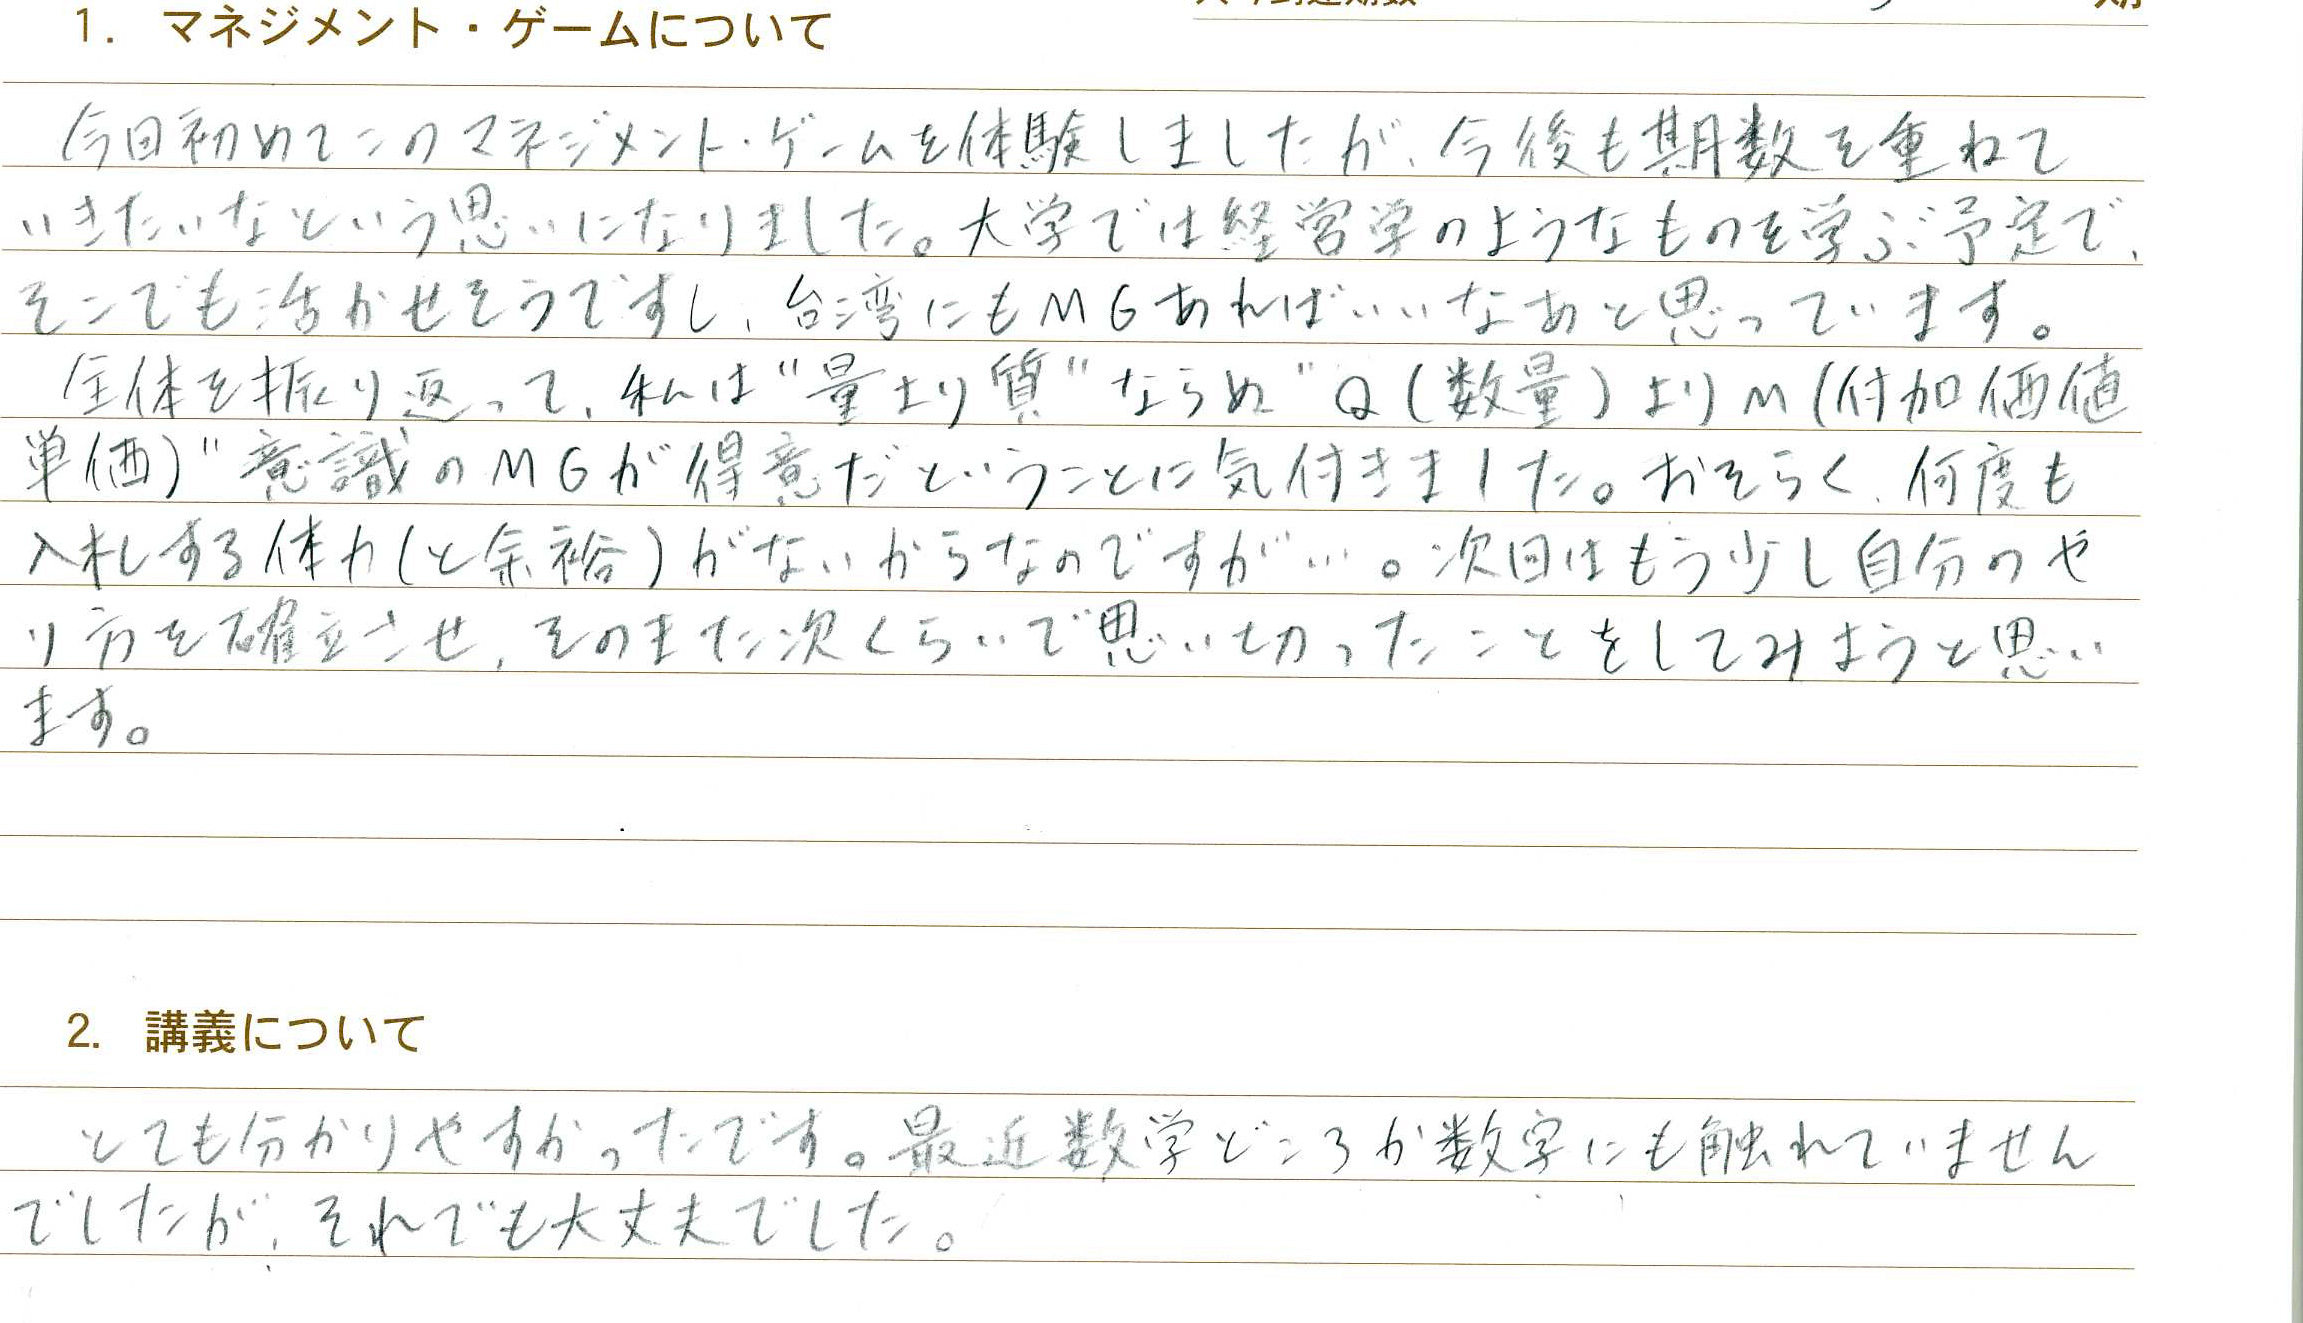 1. マネジメント・ゲームについて
今回初めてこのマネジメント・ゲームを体験しましたが、今後も期数を重ねて
いきたいなという思いになりました。大学では経営学のようなものを学ぶ予定で、
そこでも活かせそうですし、台湾にもMGあればいいなあと思っています。
全体を振り返って、私は"量より質"ならぬ"Q(数量)よりM(付加価値
単価)"意識のMGが得意だということに気付きました。おそらく、何度も
入札する体力(と余裕)がないからなのですが…。次回はもう少し自分のや
り方を確立させ、そのまた次くらいで思い切ったことをしてみようと思い
ます。
2. 講義について
とても分かりやすかったです。最近数学どころか数字にも触れていません
でしたが、それでも大丈夫でした。